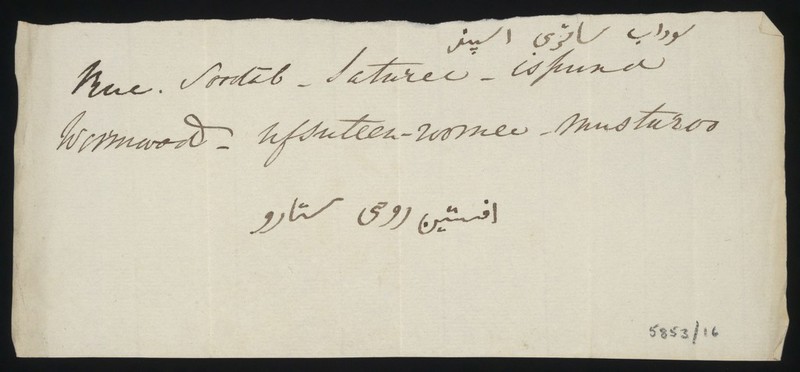 سوداب ساتری اسپند
Rue. Soodab - Saturee - ispund
Wormwood - Ufsuteen-roomee - musturoo
افسنتین رومی ستارو
5853/16